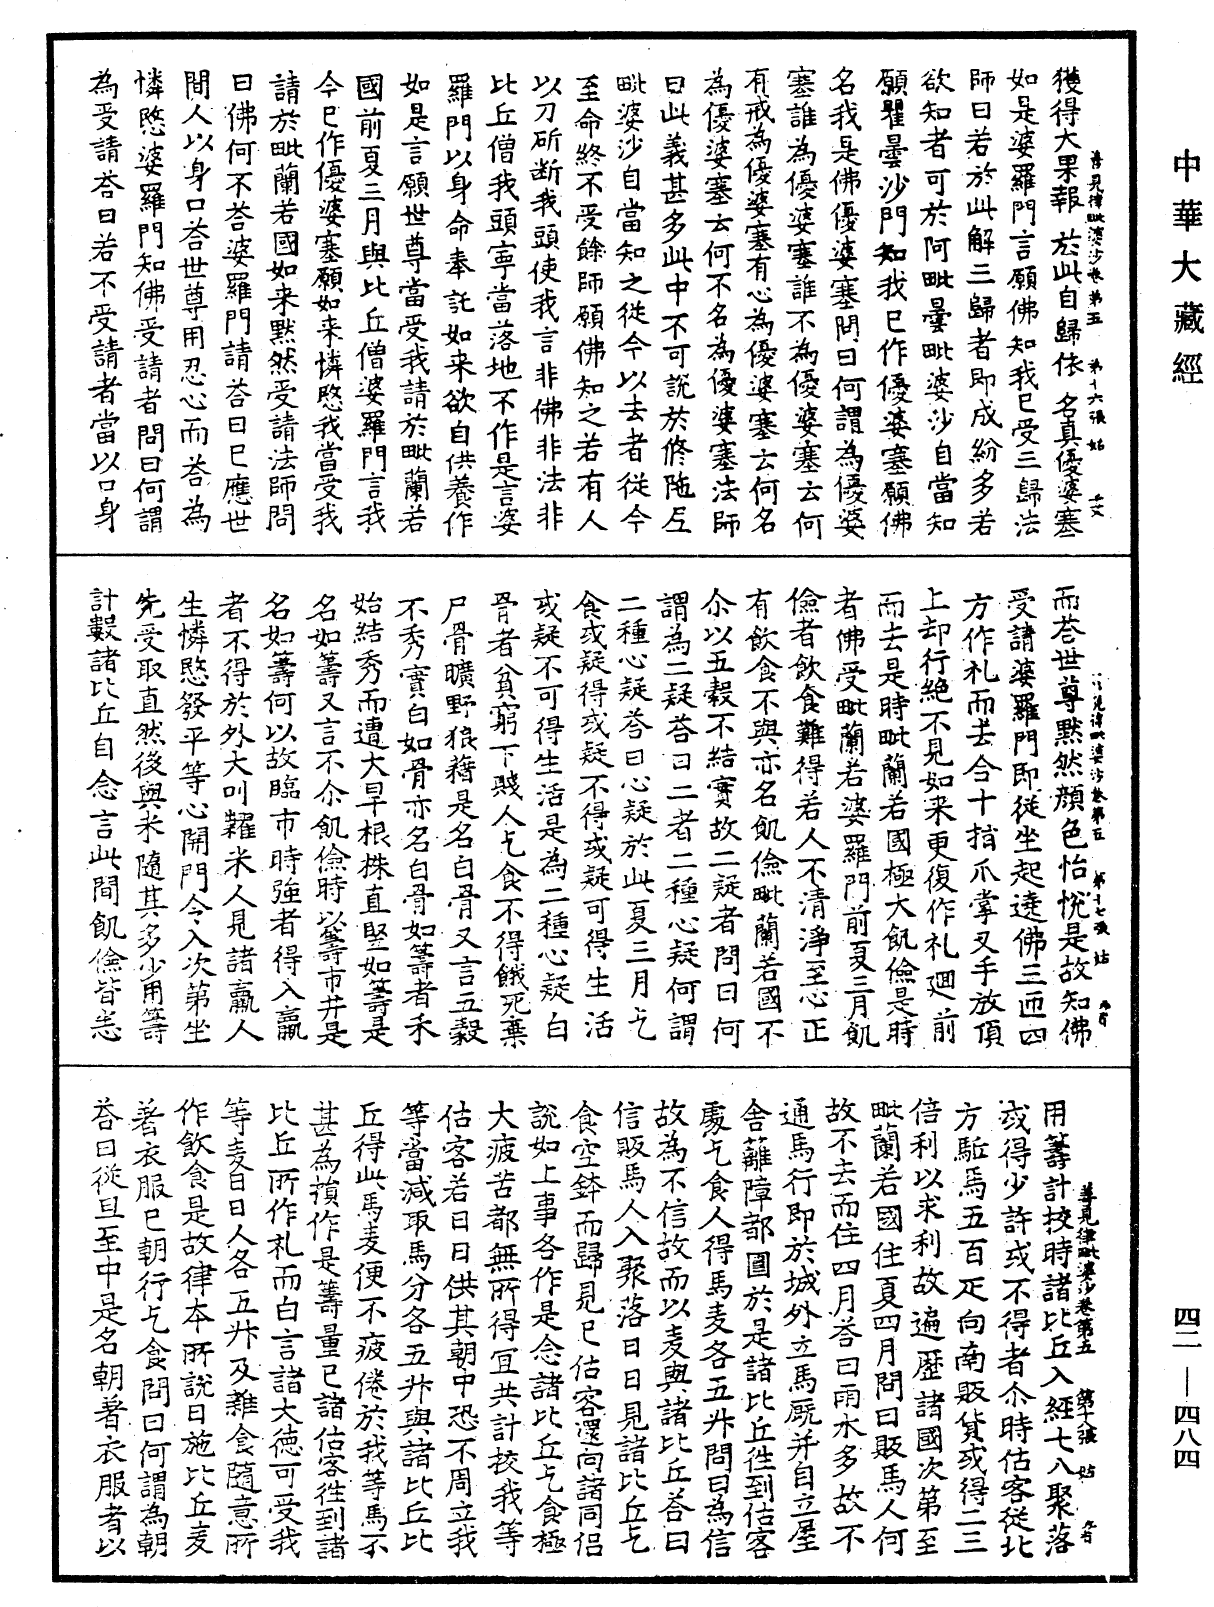 中華大藏經
善見律毗婆沙卷第五 第十六張 姑
獲得大果報於此自歸依名真優婆塞
如是婆羅門言願佛知我已受三歸法
師曰若於此解三歸者即成紛多若
欲知者可於阿毗曇毗婆沙自當知
願瞿曇沙門知我已作優婆塞願佛
名我是佛優婆塞問曰何謂為優婆
塞誰為優婆塞誰不為優婆塞云何
有戒為優婆塞有心為優婆塞云何名
為優婆塞云何不名為優婆塞法師
曰此義甚多此中不可說於修陁㞐
毗婆沙自當知之從今以去者從今
至命終不受餘師願佛知之若有人
以刀斫斷我頭使我言非佛非法非
比丘僧我頭寧當落地不作是言婆
羅門以身命奉託如来欲自供養作
如是言願世尊當受我請於毗蘭若
國前夏三月與比丘僧婆羅門言我
今已作優婆塞願如来憐愍我當受我
請於毗蘭若國如来默然受請法師問
曰佛何不荅婆羅門請荅曰已應世
間人以身口荅世尊用忍心而荅為
憐愍婆羅門知佛受請者問曰何謂
為受請荅曰若不受請者當以口身
善見律毗婆沙卷第五 第十七張 姑
而荅世尊默然顔色怡悅是故知佛
受請婆羅門即從坐起遶佛三匝四
方作礼而去合十指爪掌叉手放頂
上却行絶不見如来更復作礼迴前
而去是時毗蘭若國極大飢儉是時
者佛受毗蘭若婆羅門前夏三月飢
儉者飲食難得若人不清淨至心正
有飲食不與亦名飢儉毗蘭若國不
尒以五穀不結實故二疑者問曰何
謂為二疑荅曰二者二種心疑何謂
二種心疑荅曰心疑於此夏三月乞
食或疑得或疑不得或疑可得生活
或疑不可得生活是為二種心疑白
骨者貧窮下賤人乞食不得餓死棄
尸骨曠野狼藉是名白骨又言五穀
不秀實白如骨亦名白骨如籌者禾
始結秀而遭大旱根株直堅如籌是
名如籌又言不尒飢儉時以籌市井是
名如籌何以故臨市時強者得入羸
者不得於外大叫糴米人見諸羸人
生憐愍發平等心開門令入次第坐
先受取直然後與米隨其多少用籌
計數諸比丘自念言此間飢儉皆悉
善見律毗婆沙卷第五 第十八張 姑
用籌計挍時諸比丘入經七八聚落
或得少許或不得者尒時估客從北
方駈馬五百疋向南販貨或得二三
倍利以求利故遍歷諸國次第至
毗蘭若國住夏四月問曰販馬人何
故不去而住四月荅曰雨水多故不
通馬行即於城外立馬廄并自立屋
舍籬障都圓於是諸比丘徃到估客
處乞食人得馬麦各五升問曰為信
故為不信故而以麦與諸比丘荅曰
信販馬人入聚落日日見諸比丘乞
食空鉢而歸見已估客還向諸同侣
說如上事各作是念諸比丘乞食極
大疲苦都無所得宜共計挍我等
估客若日日供其朝中恐不周立我
等當減取馬分各五升與諸比丘比
丘得此馬麦便不疲倦於我等馬不
甚為損作是籌量已諸估客徃到諸
比丘所作礼而白言諸大徳可受我
等麦日日人各五升及雜食隨意所
作飲食是故律本所說日施比丘麦
著衣服已朝行乞食問曰何謂為朝
荅曰從旦至中是名朝著衣服者以
四二—四八四